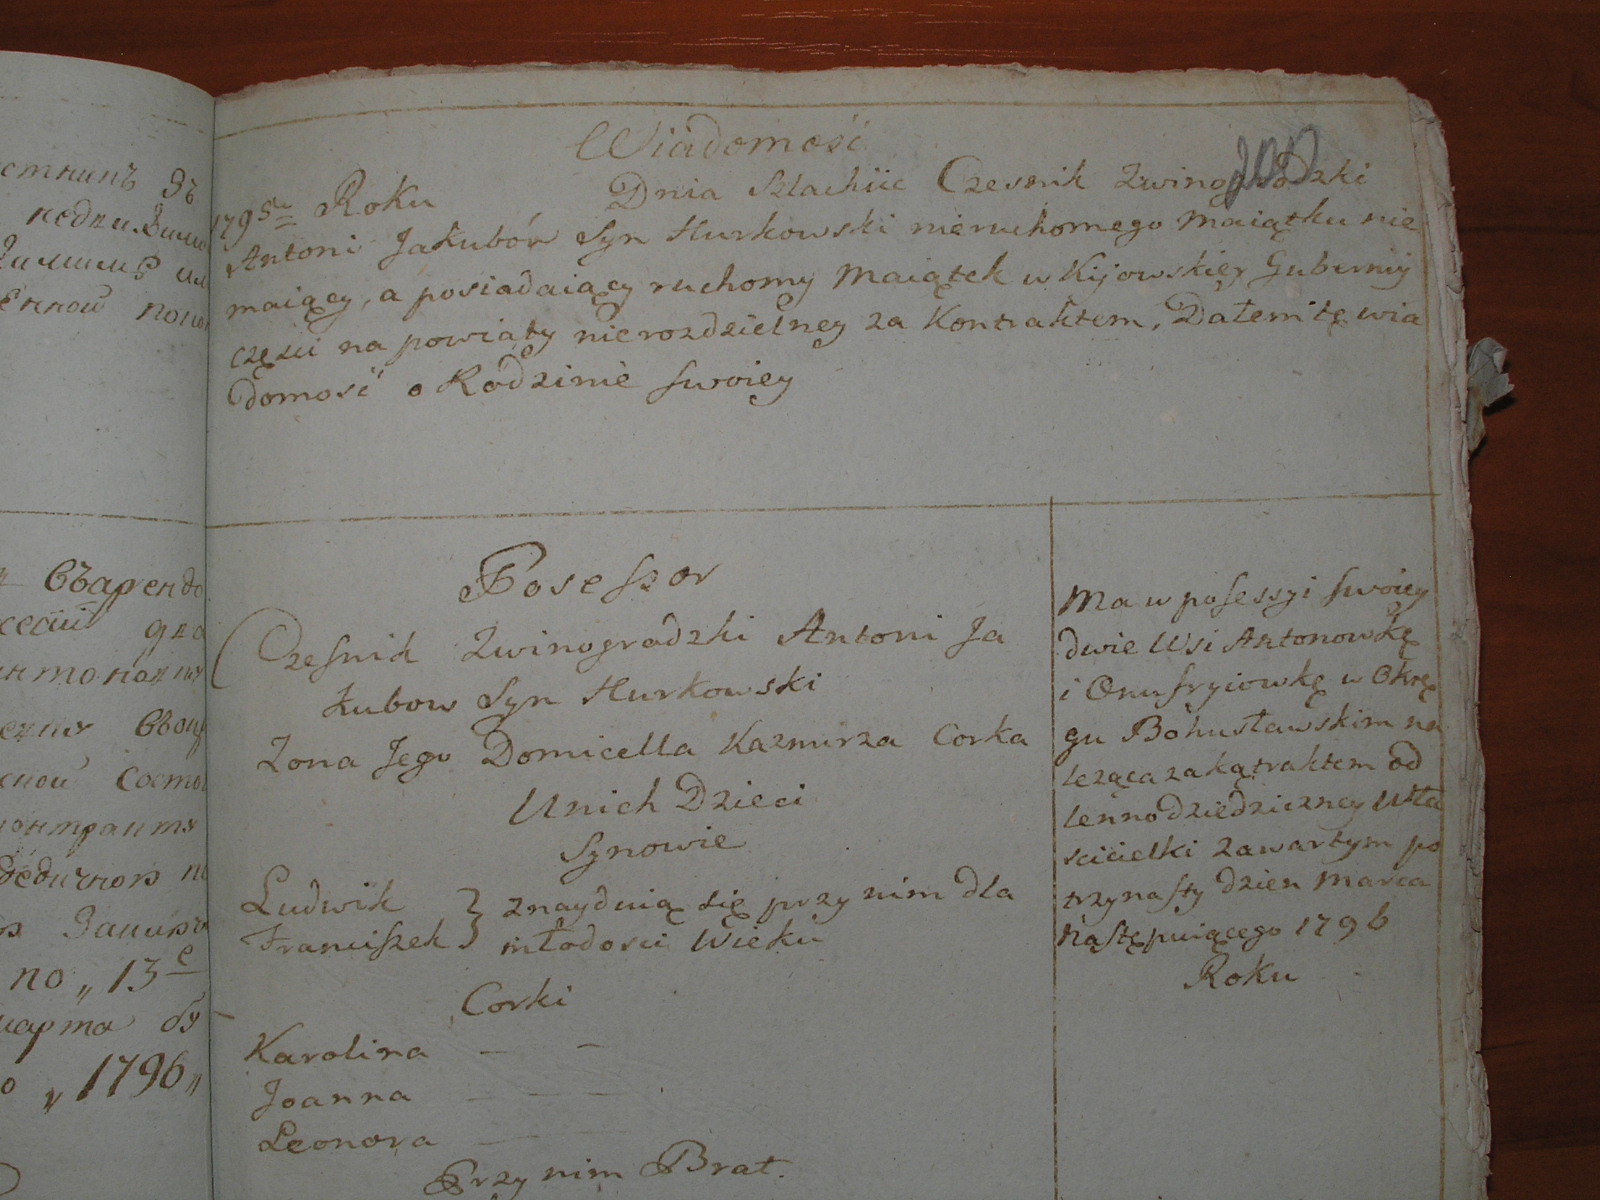 стникъ
Въаренд
по „ 13 е
марта бу
„ 1796 „
Wiadomość
200
1795u Roku Dnia Szlachcic Czesnik Zwinogrodzki
Antoni Jakubów Syn Hurkowski nieruchomego Maiątku nie
maiący, a posiadaiący ruchomy Maiątek w Kijowskiey Gubernij
części na powiaty nierozdzielney za Kontraktem, Dałem tę wia
domość o Rodzinie swoiey
Posessor
Czesnik Zwinogradzki Antoni Ja
kubow Syn Hurkowski
Zona Jego Domicella Kazmirza Corka
Unich Dzieci
Synowie
Ludwik } znayduią się przy nim dla
Franciszek } młodosci Wieku
Corki
Karolina — —
Joanna — — —
Leonora — —
Przy nim Brat.
Ma w posessyi swoiey
dwie Wsi Antonowkę
i Onufryiowkę w Okrę
gu Bohusławskim na
leząca za kątraktem od
lenno dziedziczney Wła
scicielki zawartym po
trzynasty dzien Marca
następuiącego 1796
Roku